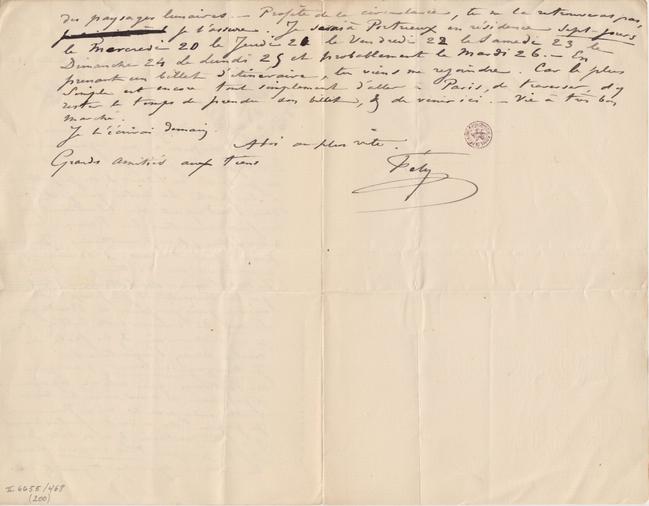 des paysages lunaires. — Profite de la circonstance, tu ne la retrouveras pas,
je t'assure. Je serai à en résidence sept jours
le Mercredi 20 le Jeudi 21 le Vendredi 22 le Samedi 23 le
Dimanche 24 le lundi 25 et probablement le Mardi 26. — En
prenant un billet d'itinéraire, tu viens me rejoindre. Car le plus
simple est encore tout simplement d'aller à Paris, de traverser, d'y
rester le temps de prendre son billet, & de venir ici. — Vie à très bon
marché.
Je t'écrirai demain
A toi au plus vite.
Grands amitiés aux tiens
Fély
II 6655/468
(200)